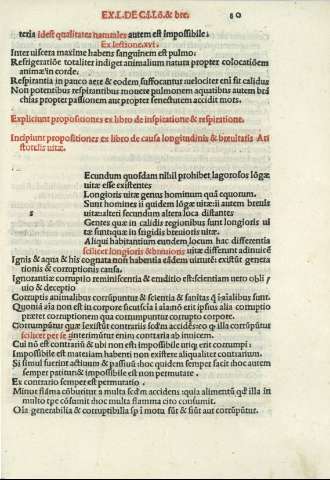 EX.L.DE C.L.lō. & bre. 80
teria idest qualitates naturales autem est impossibile.
Ex.lectione.xvi.
Inter uiscera maxime habens sanguinem est pulmo.
Refrigeratiōe totaliter indiget animalium natura propter colocatiōem
animæ in corde.
Respirantia in pauco aere & eodem suffocantur uelociter eni fit calidus
Non potentibus respirantibus mouere pulmonem aquatibus autem brā
chias propter passionem aut propter senectutem accidit mors.
Expliciunt propositiones ex libro de inspiratione & respiratione.
Incipiunt propositiones ex libro de causa longitudinis & breuitatis Ari
stotelis uitæ.
s
Ecundum quosdam nihil prohibet lāgorosos lōgæ
uitæ esse existentes
Longioris uitæ genus hominum quā equorum.
Sunt homines ii quidem lōgæ uitæ:ii autem breuis
uitæ:alteri secundum altera loca distantes
Gentes quæ in calidis regionibus sunt longioris ui
tæ sunt:quæ in frigidis breuioris uitæ.
Aliqui habitantium eundem locum hac differentia
scilicet longioris & breuioris uitæ differunt adinuicē
Ignis & aqua & his cognata non habentia eādem uirtutē: existūt genera
tionis & corruptionis causa.
Ignorantiæ corruptio reminiscentia & eruditio est:scientiam uero obli
uio & deceptio
Corruptis animalibus corrūpuntur & scientia & sanitas q̄ i aīalibus sunt.
Quoniā aīa non est in corpore sicut scīa i aīa:nō erit ipsius alia corruptio
præter corruptionem qua corrumpuntur corrupto corpore.
Corrumpūtur quæ īexistūt contrariis secūm accidēs:eo q̄ illa corrūpūtur
scilicet per se :interimūtur enim contaria ab inuicem.
Cui nō est contrariū & ubi non est impossibile utiq̄ erit corrumpi
Impossibile est materiam habenti non existere aliqualiter contrarium.
Si simul fuerint actiuum & passiuū :hoc quidem semper facit hoc autem
semper patitur& impossibile est non permutare
Ex contrario semper est permutatio
Minor flāma cōburitur a multa secūm accidens :quia alimentū qd illa in
multo tpe cōsumit hoc multa flamma cito consumit.
Oīa generabilia & corruptibilia sp i motu sūt & fiūt aut corrūpūtur.